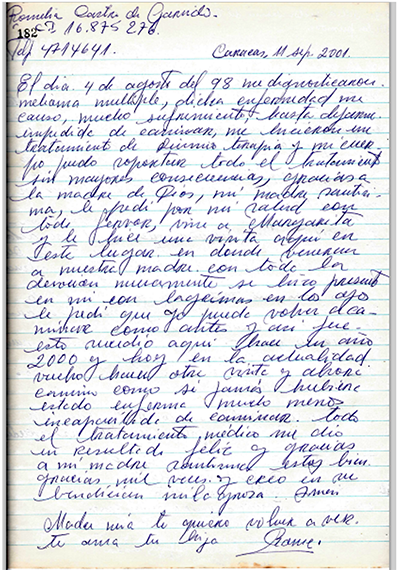 Romelia Castro de Garrido.
182 C.I 16.875 276.
Telf 4714641.
Caracas, 11 sep. 2001.
El dia. 4 de agosto del 98 me diagnosticaron.
mieloma multiple, dicha enfermedad me
causo, mucho sufrimiento hasta dejarme
impedida de caminar, me hicieron un
tratamiento de Quimio terapia y mi cuer-
po pudo soportar todo el tratamiento
sin mayores consecuencias, gracias a
la madre de Dios, mi madre santisi-
ma, le pedi por mi salud con
todo fervor, vine a Margarita
y le hice una visita aqui en
este lugar. en donde veneran
a nuestra madre con toda la
devocion nuevamente se hizo presente
en mi con lagrimas en los ojos
le pedi que yo puede volver a ca-
minar como antes y asi fue
esto sucedio aqui hace un año
2000 y hoy en la actualidad
vuelvo hacer otra visita y ahora
camino como si jamás hubiera
estado enferma mucho menos
incapacitada de caminar. todo
el tratamiento médico me dio
un resultado feliz y gracias
a mi madre santisima estoy bien.
gracias mil veces. y creo en su
bendicion milagrosa. Amen
Madre mia te quiero volver a ver.
te ama tu hija